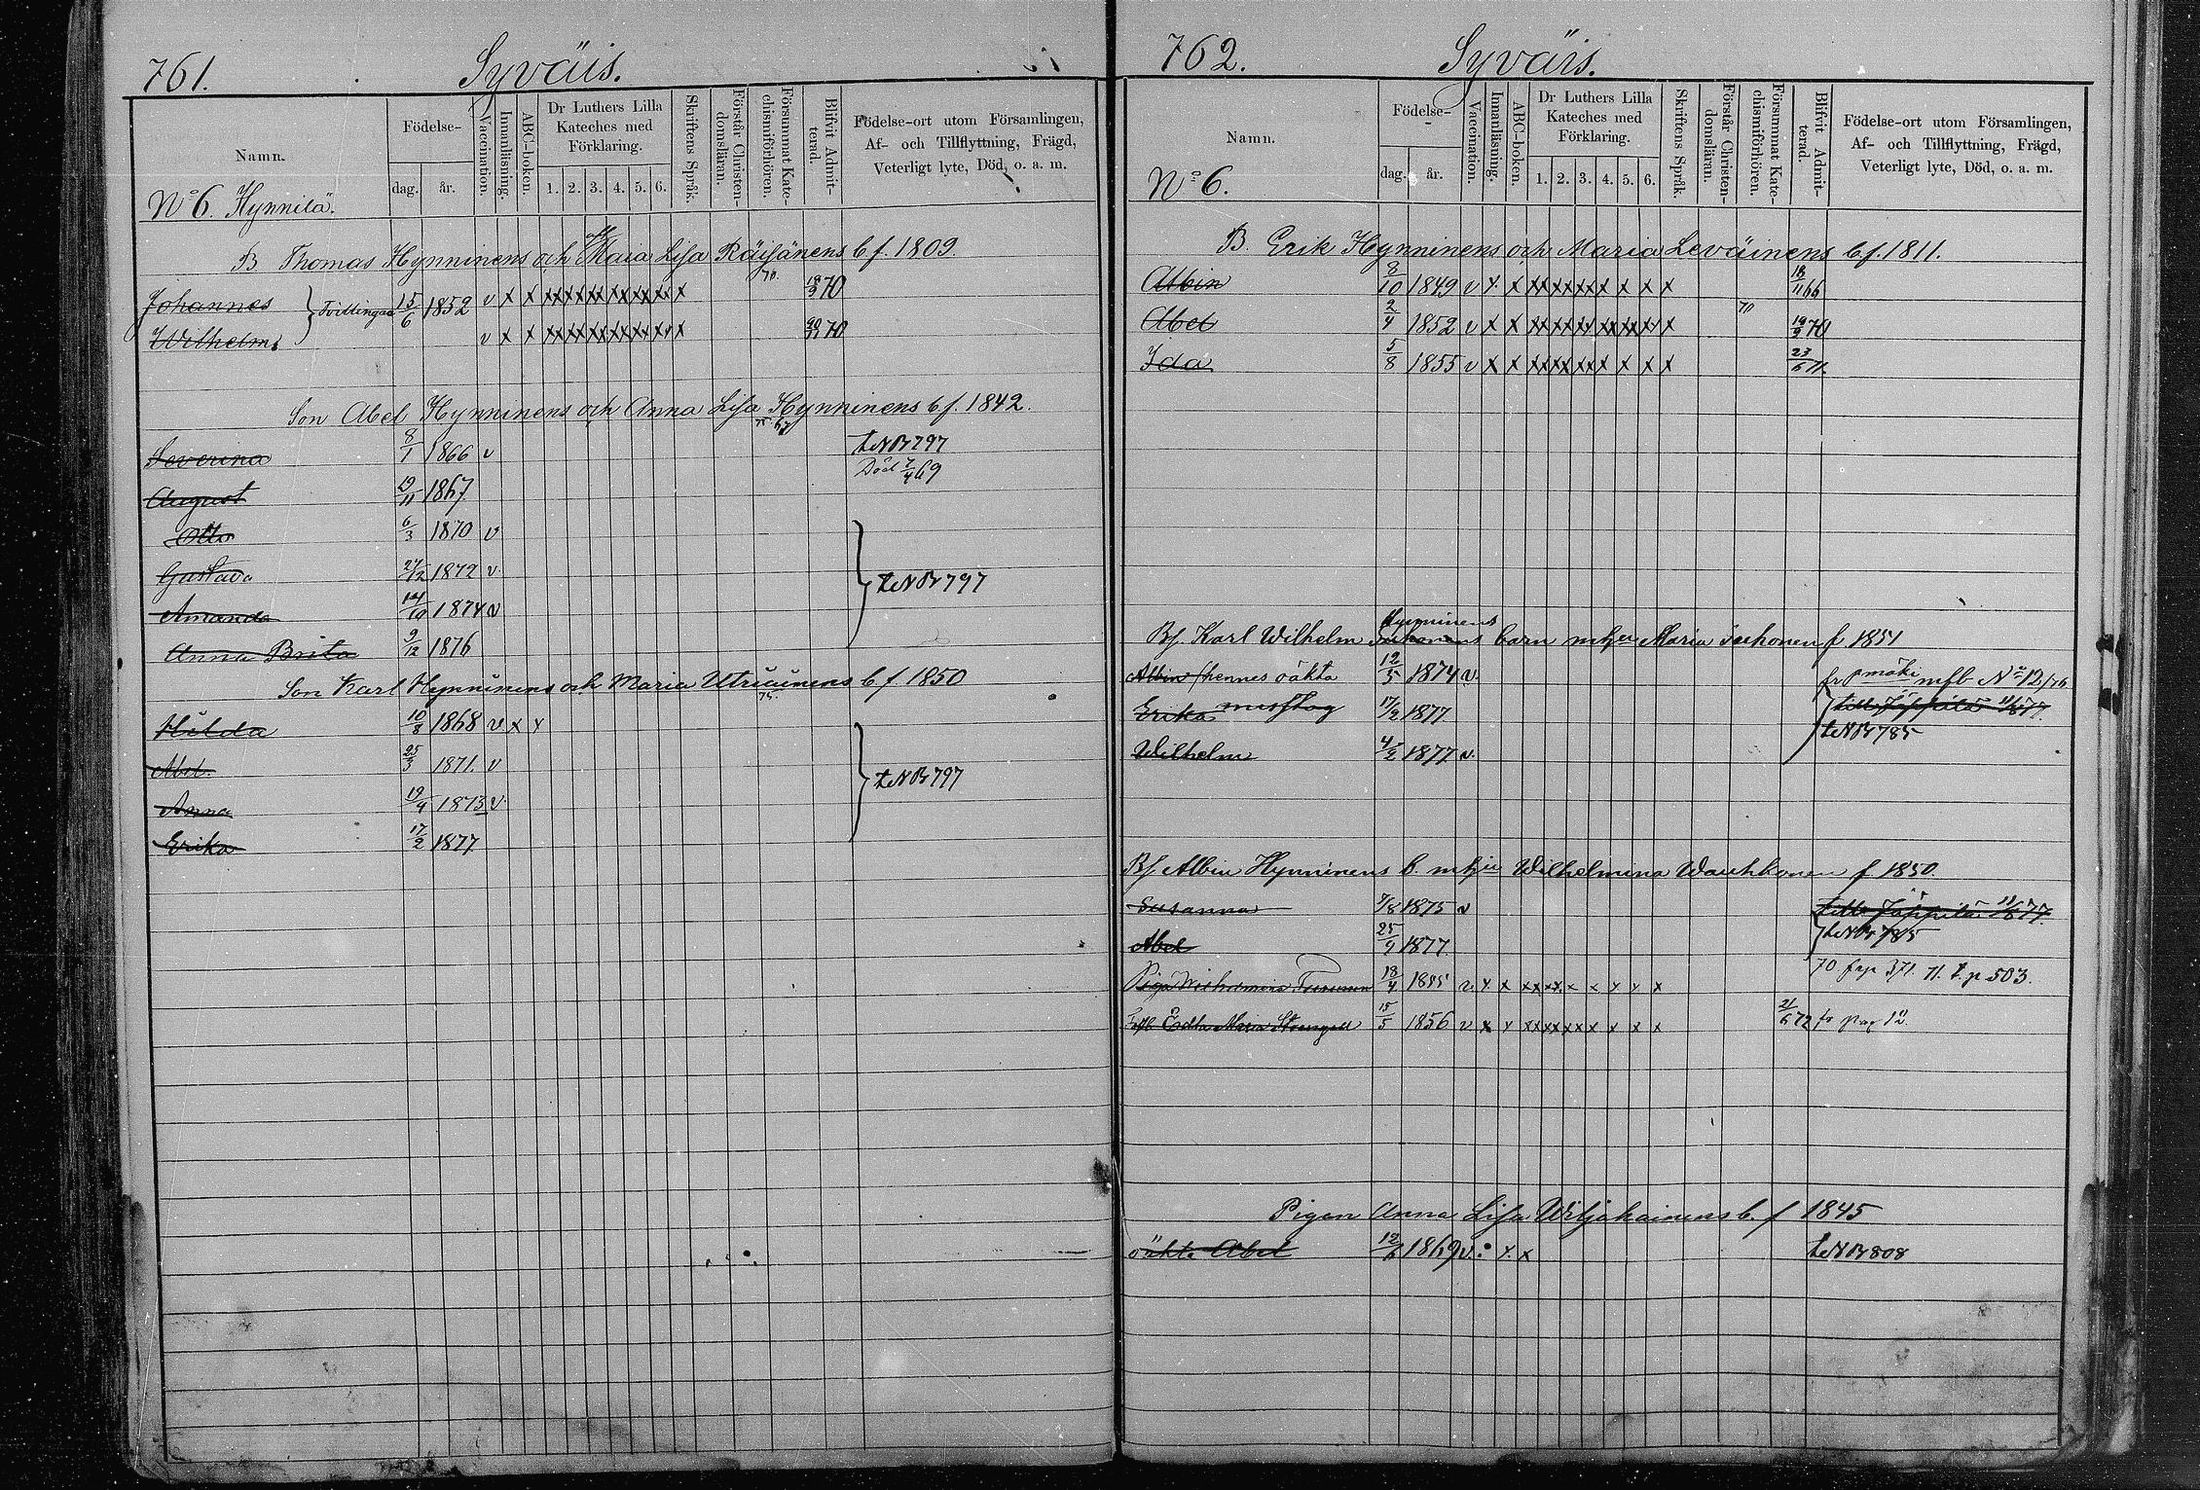 761. Syväis.
Namn.
Födelse-
dag. år.
Vaccination.
Innanläsning.
ABC-boken.
Dr Luthers Lilla
Kateches med
Förklaring.
1. 2. 3. 4. 5. 6.
Skriftens Språk.
Förstår Christen-
domsläran.
Försummat Kate-
chismiförhören.
Blifvit Admit-
terad.
Födelse-ort utom Församlingen,
Af- och Tillflyttning, Frägd,
Veterligt lyte, Död, o. a. m.
No 6. Hynnilä.
B Thomas Hynninens och Maia Lisa Räisänens b f. 1809.
Johannes Tvillingar 15/6 1852 v x x 70
Wilhelm v x x 70
Son Abel Hynninens och Anna Lisa Hynninens b f. 1842.
Severina 8/1 1866 v t. N Br 797
Död 7/4 69
August 1867
Otto 6/3 1870 v
Gustava 1872 v t. N Br 797
Amanda 1874 v
Anna Brita 9/12 1876
Son Karl Hynninens och Maria b f 1850
Hilda 10/8 1868 v x x
Abel 25/3 1871. v
t. N Br 797
Anna 19/9 1873 v
Erika 17/2 1877
762. Syväis.
Namn.
Födelse-
dag. år.
Vaccination.
Innanläsning.
ABC-boken.
Dr Luthers Lilla
Kateches med
Förklaring.
1. 2. 3. 4. 5. 6.
Skriftens Språk.
Förstår Christen-
domsläran.
Försummat Kate-
chismiförhören.
Blifvit Admit-
terad.
Födelse-ort utom Församlingen,
Af- och Tillflyttning, Frägd,
Veterligt lyte, Död, o. a. m.
No 6.
B. Erik Hynninens och Maria Leväinens b. f. 1811.
Albin 8/10 1849 v x x
Abel 2/4 1852 v x x 70
Ida 5/8 1855 v x x
Hynninens
Bf. Karl Wilhelm barn m hu Maria f 1851
Albin hennes oäkta 12/5 1874 v. mfb No 12/76
Erika 17/2 1877
t. N Br 785
Wilhelm 4/2 1877 v.
Bf Albin Hynninens b. m hu Wilhelmina Wauhkonen f 1850.
Susanna 7/8 1875 v
Abel 25/9 1877 t. N Br 785
70 fr p 371. 71. t. p 503.
Piga Wilhelmina 18/4 1855 v. x x
Edla Maria 15/5 1856 v x x 21/6 72 fr pag 12
Pigan Anna Lisa Wiljakainens b. f 1845
oäkta Abel 1869 v. x. x t. N Br 808